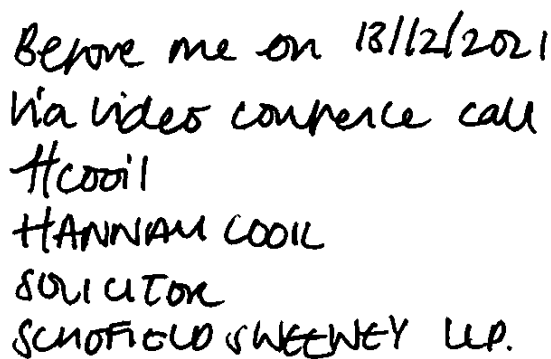 Before me on 13/12/2021
Via video conference call
Hcooil
HANNAH COOIL
SOLICITOR
SCHOFIELD SWEENEY LLP.